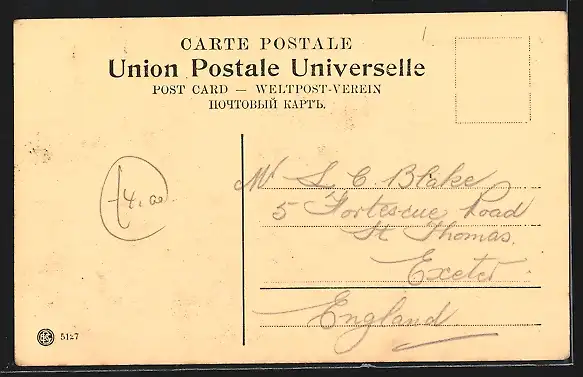 CARTE POSTALE
Union Postale Universelle
POST CARD — WELTPOST-VEREIN
ПОЧТОВЫЙ КАРТЪ.
Mr S. C. Blake
5 Fortescue Road
St Thomas.
Exeter
England
5127